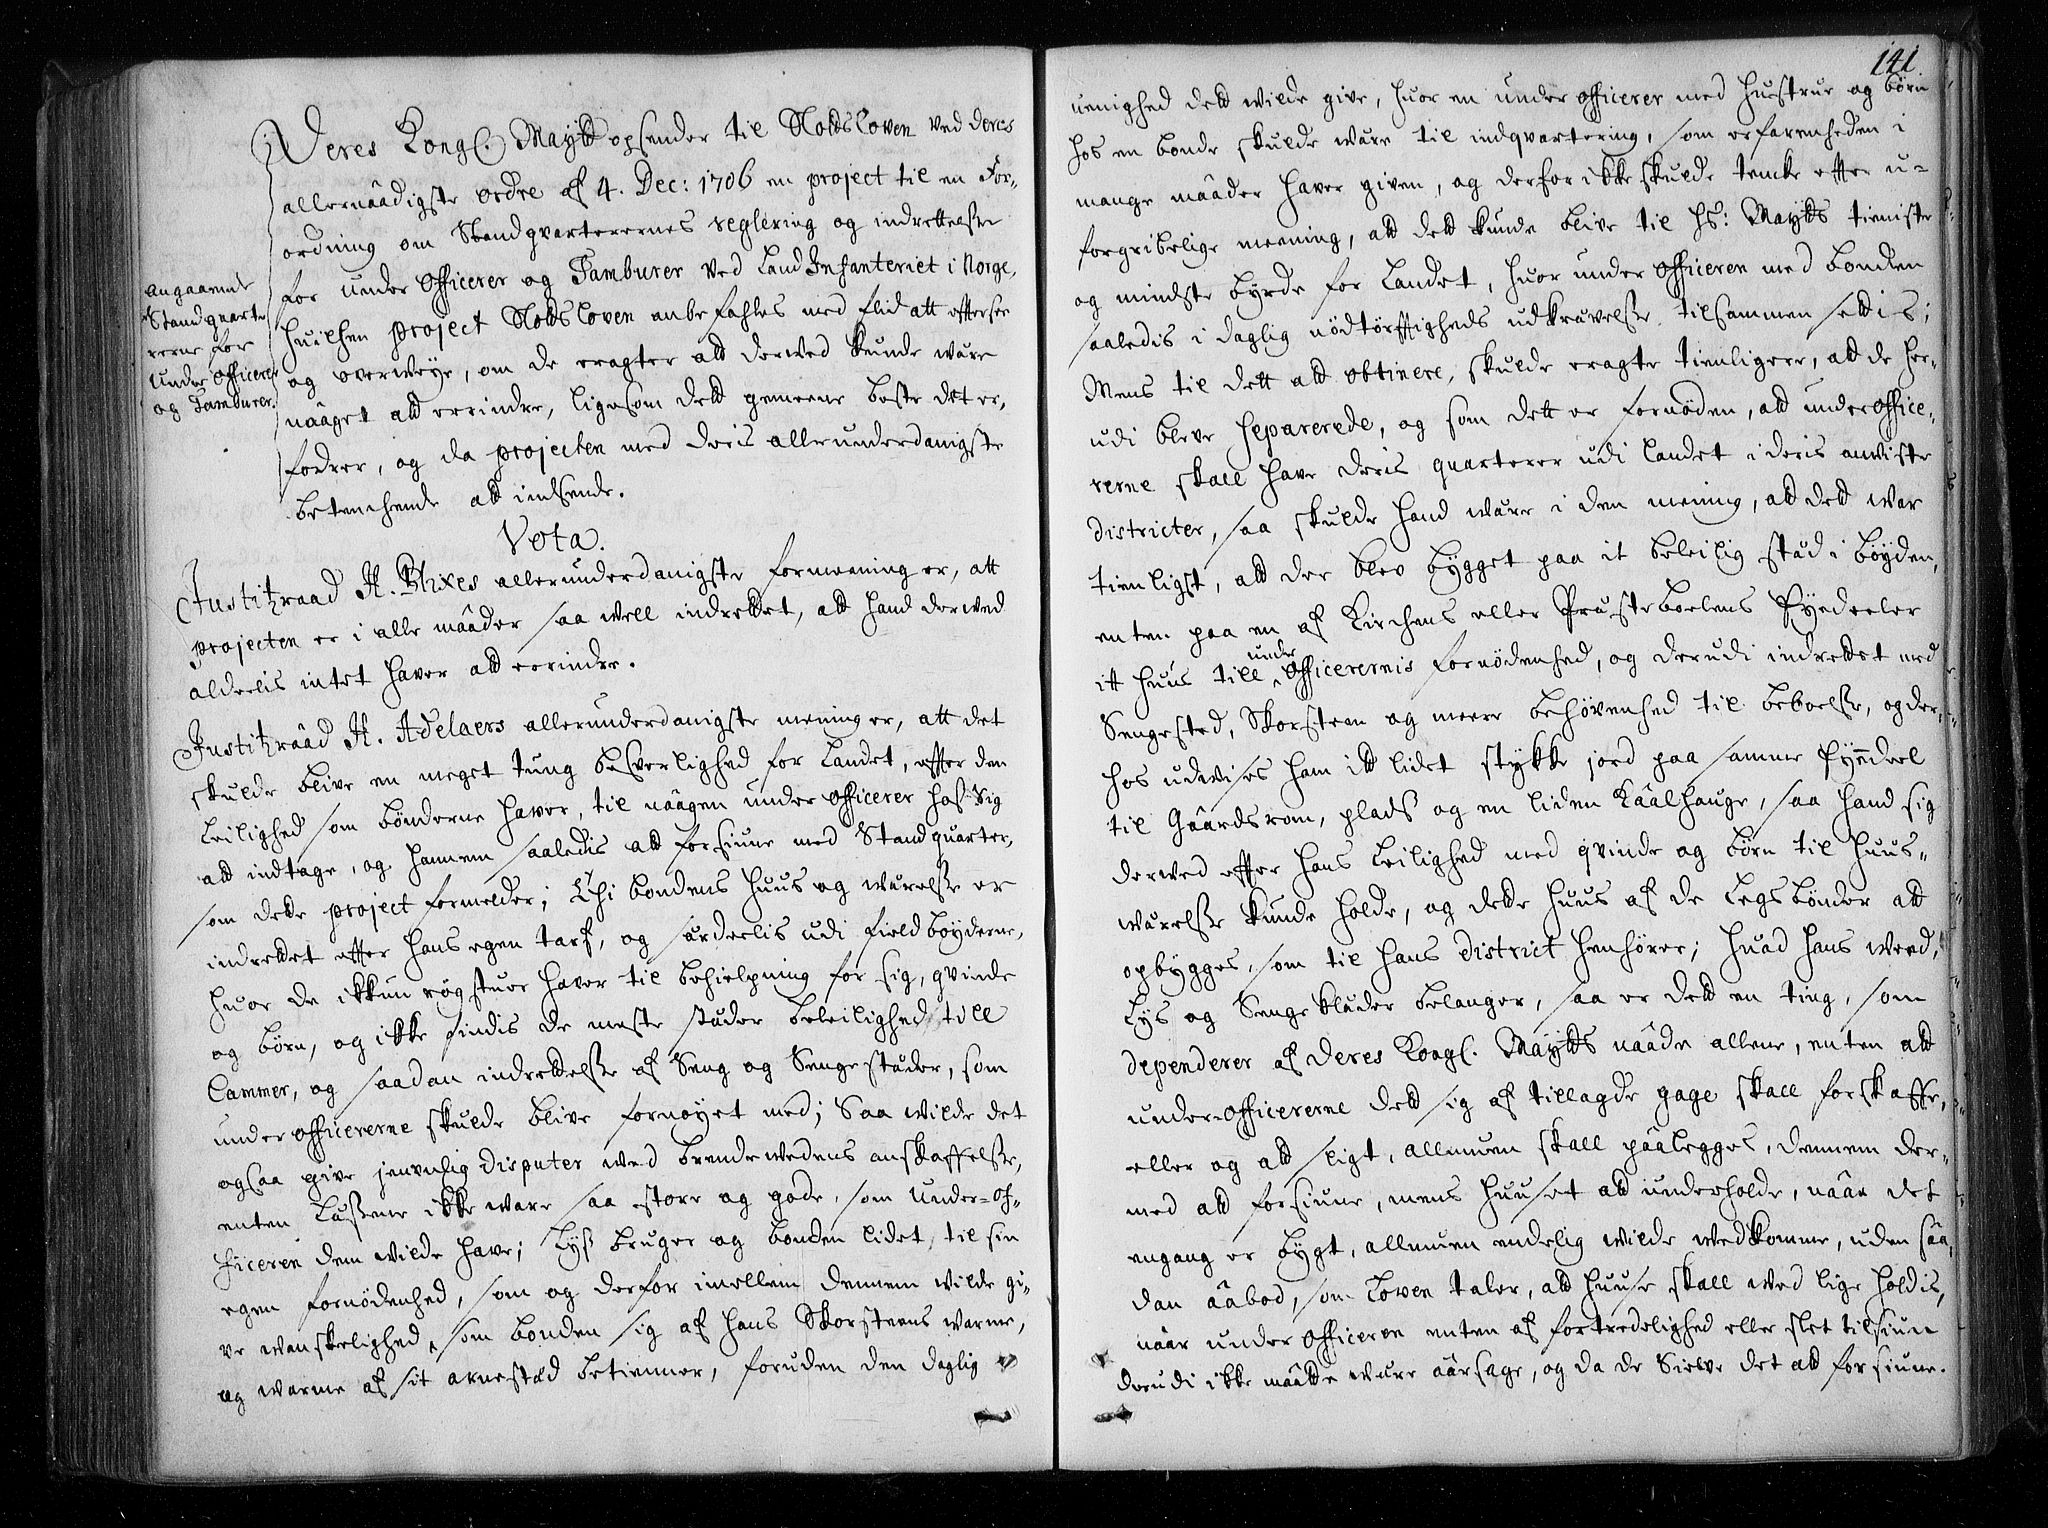 Deres Kongl. Maytt opsender til Slodsloven ved deres
allernåadigste ordre af 4. Dec: 1706 en project til en For-
ordning om Standqvarterernes reglering og indrettelse
for under Officerer og Tamburer ved Land Infanteriet i Norge,
huilchen project Slodsloven anbefahles med flid att effterse
og overweye, om de eragter att derved kunde være
nåaget att erindre, ligesom dett gemeene beste det er-
fodrer, og da projecten med deris allerunderdanigste
betenchende att indsende.
angaaende
Standqvarte
rerne for
Under Officerer
og Tamburer.
Vota.
Justitzraad H. Blixes allerunderdanigste formeening er, att
projecten er i alle måader saa well indrettet, att hand derved
alderlis intet haver att erindre.
Justitzråad H. Adelaers allerunderdanigste mening er, att det
skulde blive en meget tung besverlighed for Landet, effter den
Leilighed som bønderne haver, til nåagen under officerer hos sig
att indtage, og hannem saaledis att forsiune med Standquarter,
som dette project formelder; Thi bondens huus og værelse er
indrettet effter hans egen tarf, og særdeelis udi fieldbøyderne,
huor de ikkun røgstuer haver til behielpning for sig, qvinde
og børn, og ikke findis de meste stæder beleilighed till
Cammer, og saadan indrettelse af Seng og Sengestæder, som
under officererne skulde blive fornøyet med; Saa wilde det
ogsaa give jevnlig disputer med brendewedens anskaffelse,
enten Lassene ikke ware saa store og gode, som Under-of-
ficeren dem wilde have; Lyß bruger og bonden lidet til sin
egen fornødenhed, som og derfor imellem dennem wilde gi-
ve wanskelighed, som bonden sig af hans Skorsteens warme,
og warme af sit arnestæd betienner, foruden den daglig
141.
uenighed dett wilde give, huor en under officerer med hustrue og børn
hos en bonde skulde være til indqvartering, som erfarenheden i
mange måader haver given, og derfor ikke skulde tencke effter u-
forgribelige meening, att dett kunde blive til Hs: Maytts tieniste
og mindste byrde for Landet, huor under officeren med bonden
saaledis i daglig nødtørfftigheds udkrævelse tilsammen settis;
Mens til dett att obtinere, skulde eragte tienligere, att de her-
udi bleve separerede, og som dett er fornøden, att under office-
rerne skall have deris quarterer udi Landet i deris anviste
districter, saa skulde hand være i den mening, att dett war
tienligst, att der blev bygget paa it beleilig stæd i bøyden,
enten paa en af Kirchens eller Præsteboelens Eyedeeler
itt huus till under officerernis fornødenhed, og derudi indrettet med
Sengested, Skorsteen og meere behøvenhed til beboelse, og der-
hos udvises ham itt lidet stykke jord paa samme Eyendeel
til Gåardsrom, plads og en liden Kåalhauge, saa hand sig
derved effter hans Leilighed med qvinde og børn til huus-
wærelse kunde holde, og dette huus af de Legsbønder att
opbygges, som til hans district henhører; huad hans weed,
Lys og Sengeklæder belanger, saa er dett en ting, som
dependerer af Deres Kongl. Maytts nåade allene, enten att
under-officererne dett sig af tillagde gage skall forskaffe,
eller og att sligt, allmuen skall påalegges, dennem der-
med att forsiune, mens huuset att underholde, nåar det
engang er bygt, allmuen endelig wilde wedkomme, uden såa-
dan åabod, som Loven taler, att huuse skall wed lige holdis,
nåar under officeren enten af fortredelighed eller slet tilsiun
derudi ikke måatte være åarsage, og da de Sielve det att forsiune.